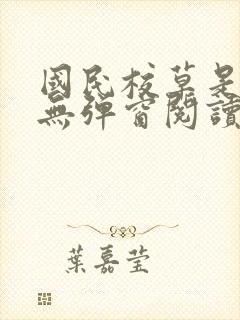 國民校草是
無彈窗閱讀
葉嘉莹